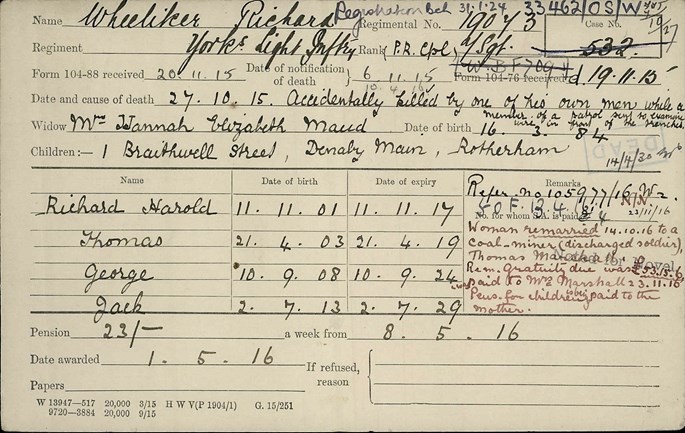 Name Wheeliker Richard Registration Bch 31.1.24 33462/OS/W
Regimental No. 19073 Case No. 532
Regiment Yorks Light Inftry Rank (P.R. Cpol) A/Sgt.
Form 104-88 received 20.11.15 Date of notification of death 6.11.15 Form 104-76 received d. 19.11.15
Date and cause of death 27.10.15. Accidentally killed by one of his own men while a
member of a patrol sent to examine
wire in front of the trenches.
Widow Mrs Hannah Elizabeth Maud Date of birth 16. 3. 84
DEAD
Children:— 1 Braithwell Street, Denaby Main, Rotherham 14/4/20
Name Date of birth Date of expiry Remarks
Richard Harold 11. 11. 01 11. 11. 17
Thomas 21. 4. 03 21. 4. 19
George 10. 9. 08 10. 9. 24
Jack 2. 7. 13 2. 7. 29
Refer. No 105977/16 W2.
No. for whom S.A. is paid
23/11/16
Woman remarried 14.10.16 to a
coal-miner (discharged soldier),
Thomas Marshall.
Rem. Gratuity due was
paid to Mrs Marshall 23.11.16
Pens. for children to be paid to the
mother.
Pension 23/- a week from 8. 5. 16
Date awarded 1. 5. 16 If refused, reason
Papers
W 13947—517 20,000 3/15 H W V(P 1904/1) G. 15/251
9720—3884 20,000 9/15